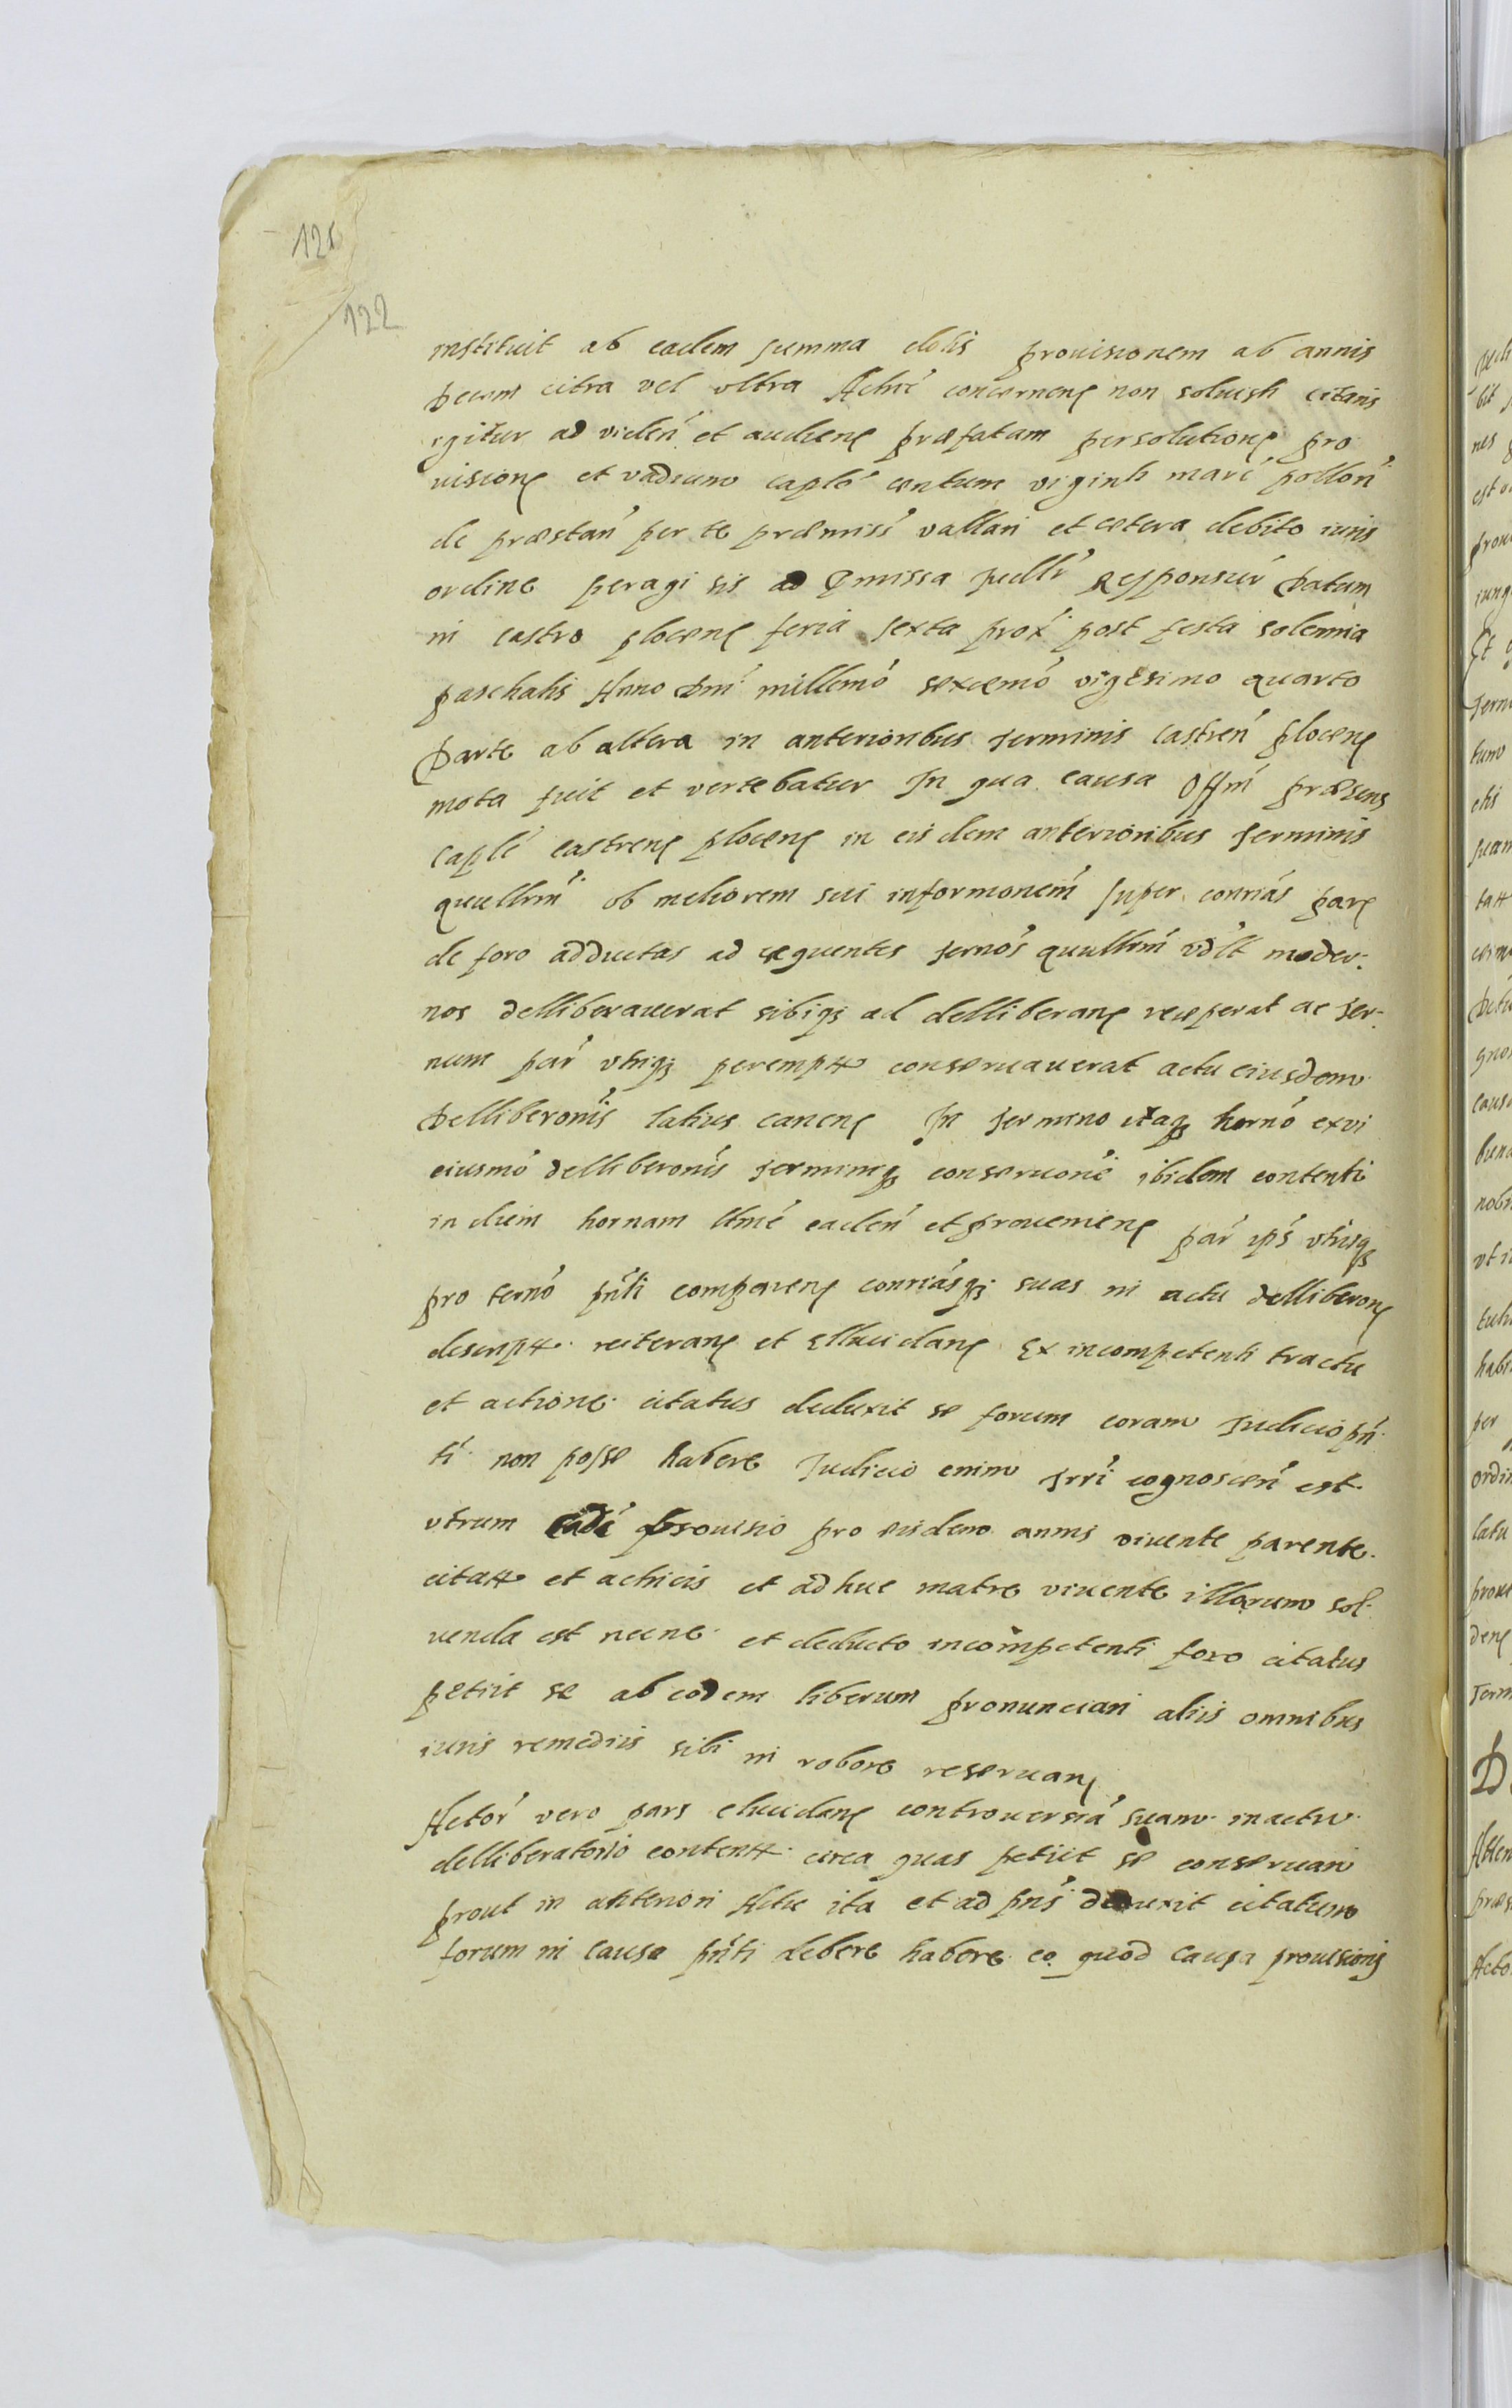 121
122
instituit ab eadem summa dotis prouisionem ab annis
decem citra vel vltra Actrici concernen non soluisti citaris
igitur ad viden et audien præfatam persolutione pro
uisione et vadium caple centum viginti marc pollon
de præstan per te præmiss vallari et cetera debito iuris
ordine peragi sis ad præmissa iudlr responsur Datum
in castro plocen feria sexta prox post festa solemnia
paschalis Anno Dni millemo sexcemo vigesimo quarto
Parte ab altera in anterioribus terminis castren plocen
mota fuit et vertebatur In qua causa Offm præsens
caple castren plocen in eisdem anterioribus terminis
qurllrm ob meliorem sui informonem super conrias par
de foro adductas ad sequentes ternos qurllrm vdlt moder
nos delliberauerat sibiq ad delliberan receperat ac ter
num par vtriq perempt conseruauerat actu eiusdem
Delliberonis latius canen In termino itaq horno ex vi
eiusmo delliberonis terminiq conseruonis ibidem contenti
in diem hornam lime caden et prouenien par ips vtrisq
pro terno pnti comparen conriasq suas in actu delliberon
descript reiteran et Ellucidan Ex incompetenti tractu
et actione citatus deduxit se forum coram Iudicio pn
ti non posse habere Iudicio enim Trri cognoscen est
vtrum prouisio pro eisdem annis viuente parente
citat et actricis et adhuc matre viuente illorum sol
uenda est necne et deducto incompetenti foro citatus
petiit se ab eodem liberum pronunciari aliis omnibus
iuris remediis sibi in robore reseruan
Actor vero pars elucidan controuersia suam in actu
delliberatorio content circa quas petiit se conseruari
prout in anteriori Actu ita et ad pns deduxit citatum
forum in causa pnti debere habere eo quod causa prouisionis